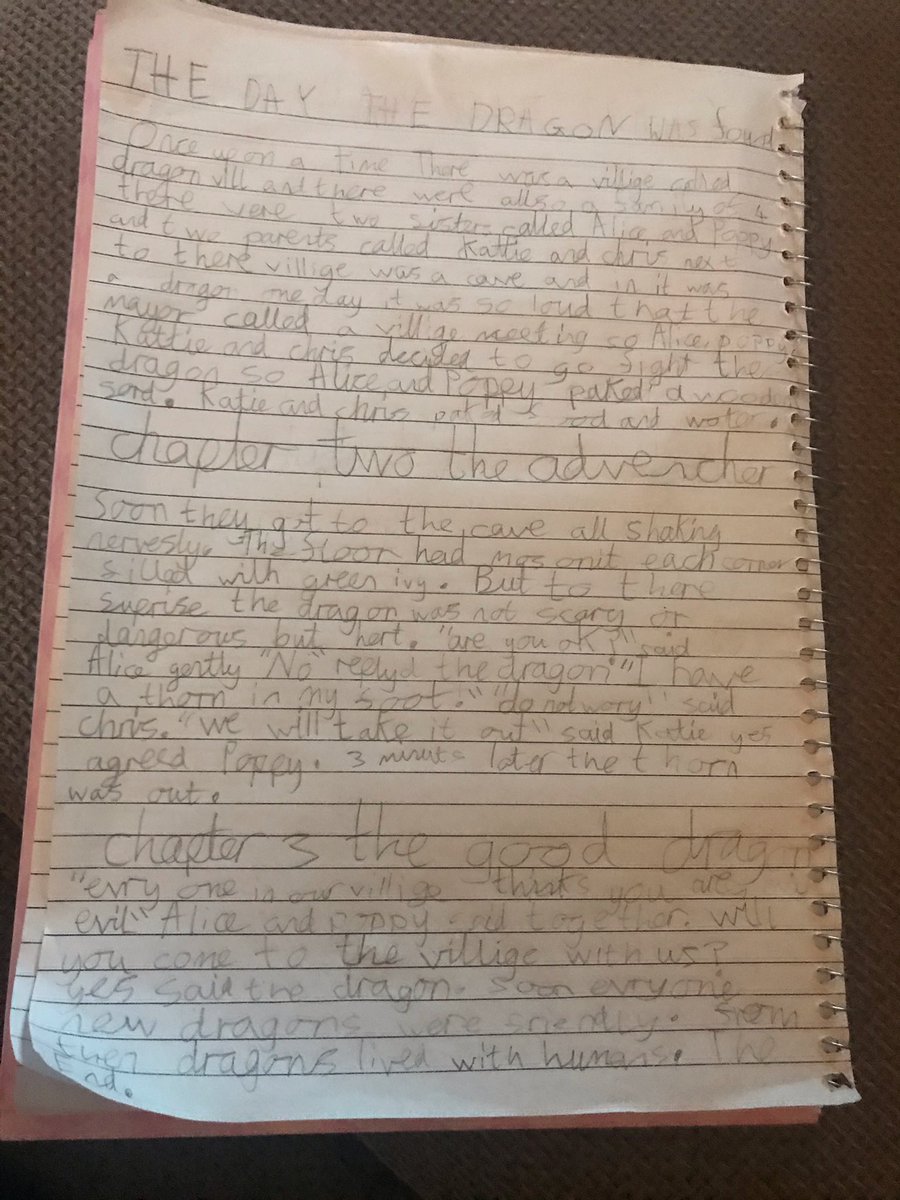 THE DAY THE DRAGON WAS found
Once upon a time There was a villige called
dragon vill and there were allso a family of 4
there were two sisters called Alice and Poppy
and two parents called Kattie and chris next
to there villige was a cave and in it was
a dragon one day it was so loud that the
mayor called a villige meeting so Alice, poppy
Kattie and chris decided to go fight the
dragon so Alice and Poppey paked a wooden
sord. Katie and chris paked food and water.
chapter two the advencher
Soon they got to the cave all shaking
nervesly. The floor had mos onit each corner
filled with green ivy. But to there
suprise the dragon was not scary or
dangerous but hert. "are you ok?" said
Alice gently "No" reelyd the dragon "I have
a thorn in my foot!" "do not wory" said
chris. "we will take it out" said Katie yes
agreed Poppy. 3 minuts later the thorn
was out.
chapter 3 the good dragon
"evry one in our villige thinks you are
evil" Alice and poppy said together. will
you come to the villige with us?
yes said the dragon. Soon evryone
new dragons were friendly. From
then dragons lived with humans. The
End.